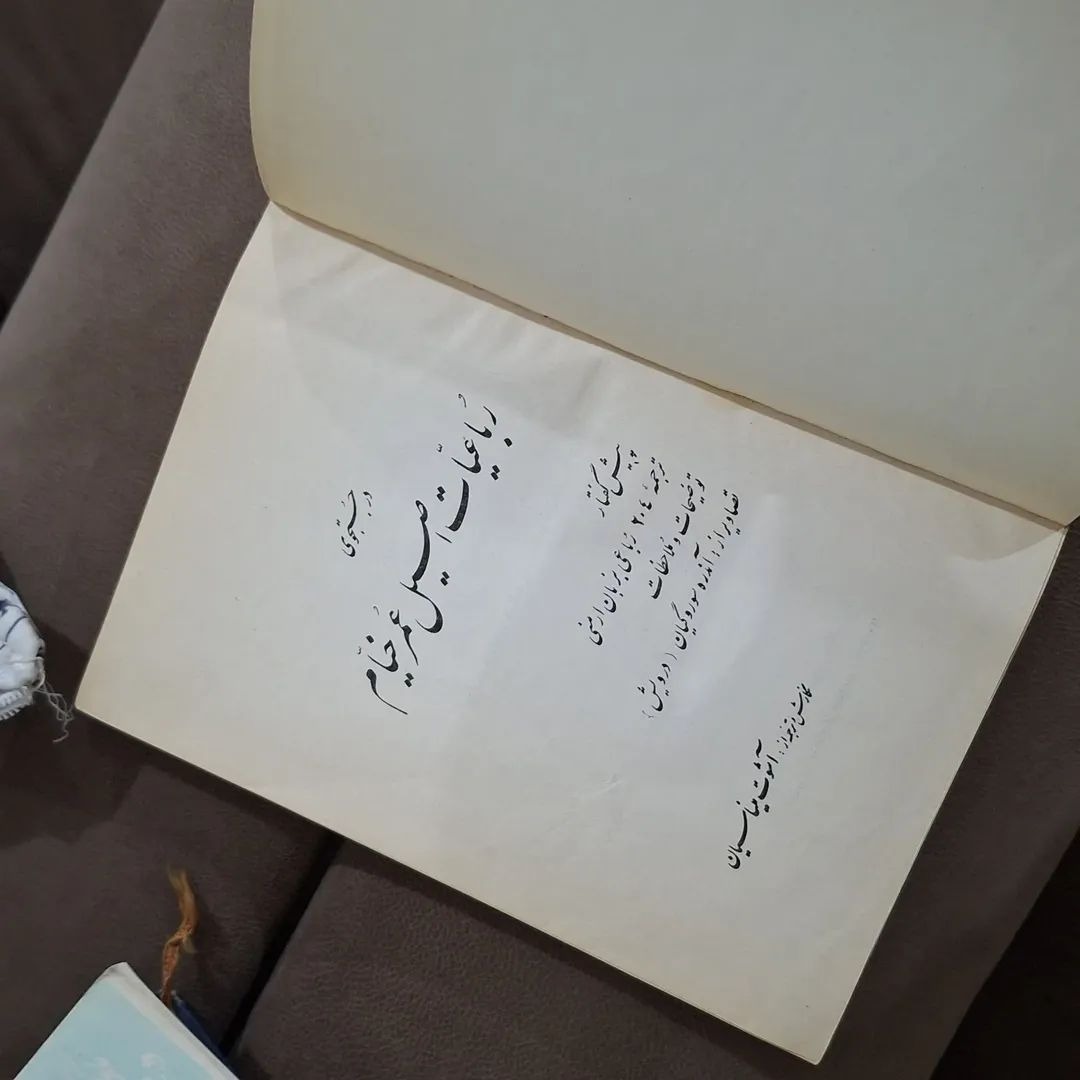 در جستجوی
رُباعیّات اصیل عُمر خیّام
پیش گفتار
ترجمهٔ ۲۰۴ رباعی بزبان ارمنی
توضیحات و ملاحظات
تصاویر از : آندره سوروگیان ( درویش )
نگارش و ترجمه از : آشوت میناسیان